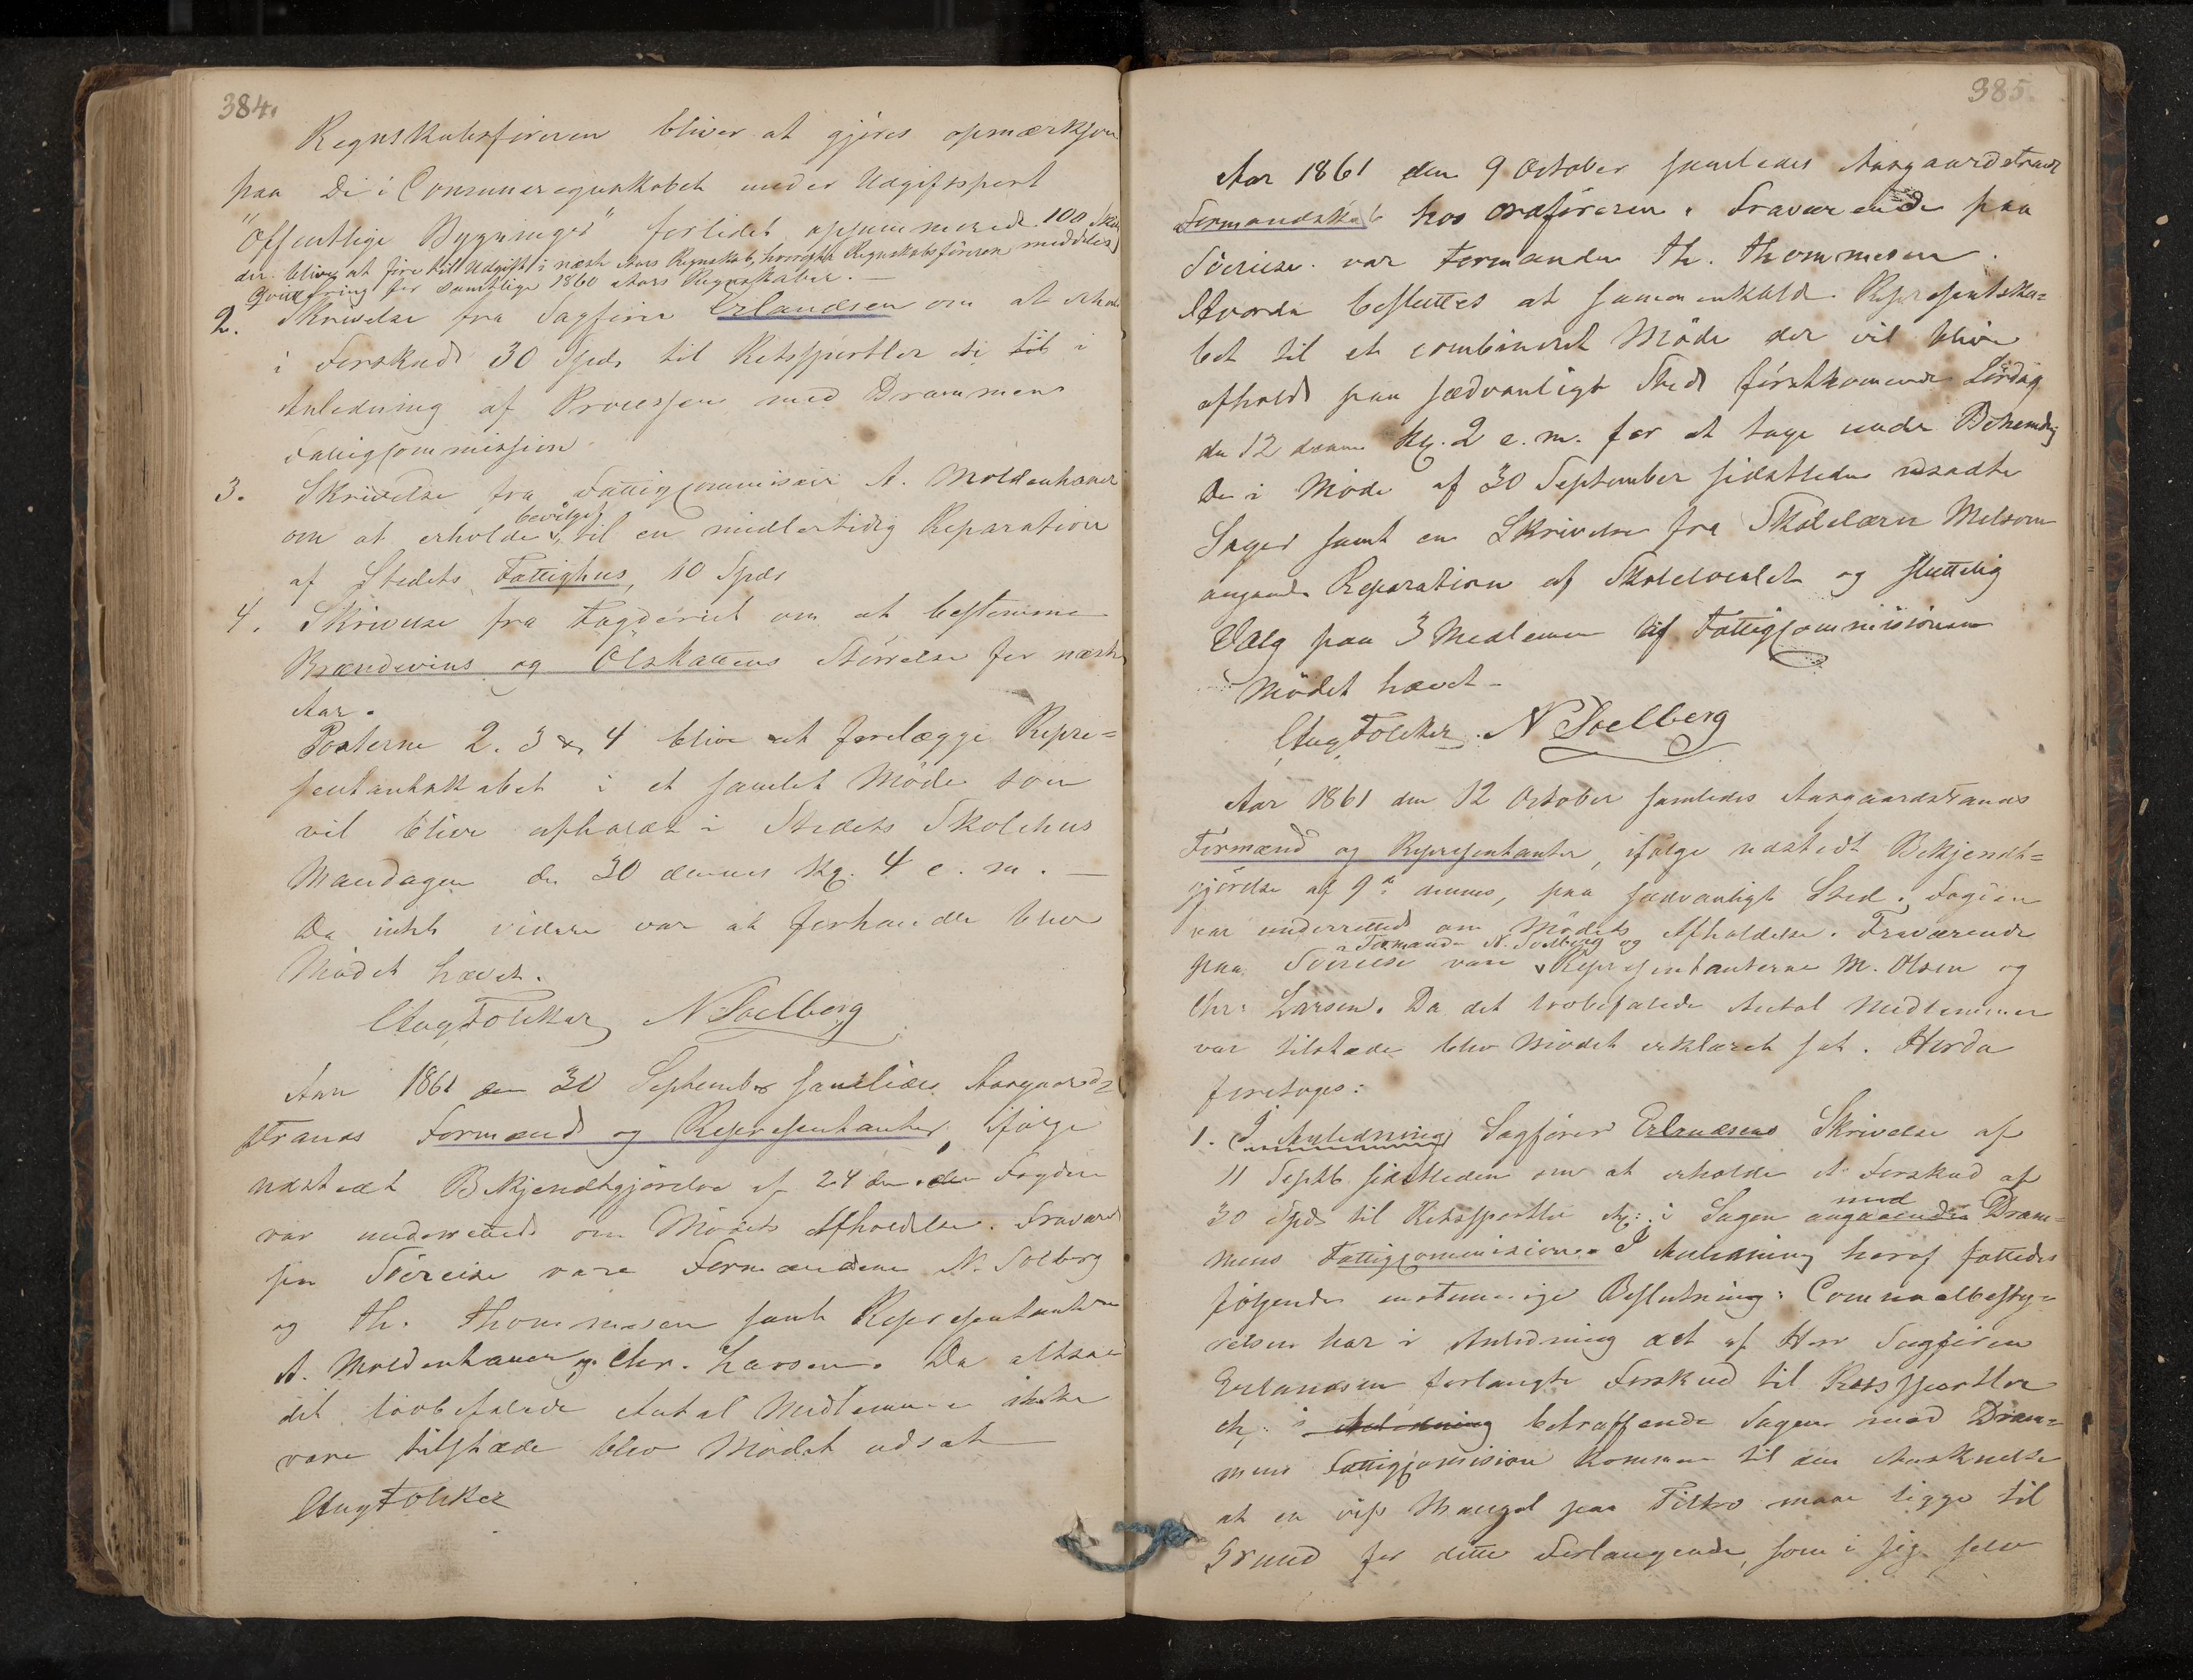 384.
Regnskabsføreren bliver at gjøres opmærksom
paa De i Communeregnskabet under Udgiftspost
"Offentlige Bygninger" forlidet opsummerede 100 Skill
der bliver at føre till Udgift i næste Aars Regnskab, hvorefter Regnskabsføreren meddeles
Qvittering for samtlige 1860 Aars Regnskaber. —
2. Skrivelse fra Sagfører Erlandsen om at erholde
i Forskud 30 Spds til Retssportler etc til i
Anledning af Processen med Drammens
Fattigcommission
3. Skrivelse fra Fattigcommissair A. Moldenhauer
bevilget
om at erholde til en midlertidig Reparation
af Stedets Fattighus, 10 Spdr
4. Skrivelse fra Fogderiet om at bestemme
Brændeviins og Ølskattens Størrelse for næste
Aar.
Posterne 2. 3 & 4 blive at forelægge Repre=
sentantskabet i et samlet Møde som
vil blive afholdt i Stedets Skolehus
Mandagen den 30 dennes Kl. 4 e. m. —
Da intet videre var at forhandle blev
Mødet hævet.
Aug Folcker N Soelberg
Aar 1861 den 30 September samledes Aasgaard=
strands Formænd og Representanter, ifølge
udstedt Bekjendtgjørelse af 24 dns. Fogden
var underrettet om Mødets Afholdelse. Fraværende
paa Søereise vare Formændene N. Solberg
og Th. Thommesen samt Representanterne
A. Moldenhauer og Chr. Larsen. Da altsaa
det lovbefalede Antal Medlemmer ikke
vare tilstæde blev Mødet udsat
Aug Folcker
385.
Aar 1861 den 9 October samledes Aasgaardstrands
Formandskab hos Ordføreren. Fraværende paa
Søereise var Formanden Th. Thommesen.
Hvorda besluttes at sammenkalde Representska=
bet til et combineret Møde der vil blive
afholdt paa sædvanligt Sted førstkommende Lørdag
den 12 dennes Kl. 2 e. m. for at tage under Behandlg
De i Møde af 30 September sidstleden udsadte
Sager samt en Skrivelse fra Skolelærer Melsom
angaaende Reparation af Skolelocalet og sluttelig
Valg paa 3 Medlemmer til Fattigcommissionen
Mødet hævet —
Aug Folcker. N Soelberg
Aar 1861 den 12 October samledes Aasgaardstrands
Formænd og Representanter, ifølge udstedt Bekjendt=
gjørelse af 9de dennes, paa sædvanligt Sted. Fogden
var underrettet om Mødets Afholdelse. Fraværende
Formanden N. Soelberg og
paa Søereise vare Representanterne M. Olsen og
Chr. Larsen. Da det lovbefalede Antal Medlemmer
var tilstæde blev Mødet erklæret sat. Hvorda
foretoges:
1. I Anledning Sagfører Erlandsens Skrivelse af
11 Septb. sidstleden om at erholde et Forskud af
30 Spds til Retssportler etc. i Sagen angaaende Dram=
med
mens Fattigcommission. I Anledning heraf fattedes
følgende enstemmige Beslutning: Communalbesty=
relsen har i Anledning det af Herr Sagfører
Erlandsen forlangte Forskud til Retssportler
etc. i Anledning betræffende Sagen med Dram=
mens Fattigcommission kommen til den Anskuelse
at en vis Mangel paa Tiltro maa ligge til
Grund for dette Forlangende, som i sig selv